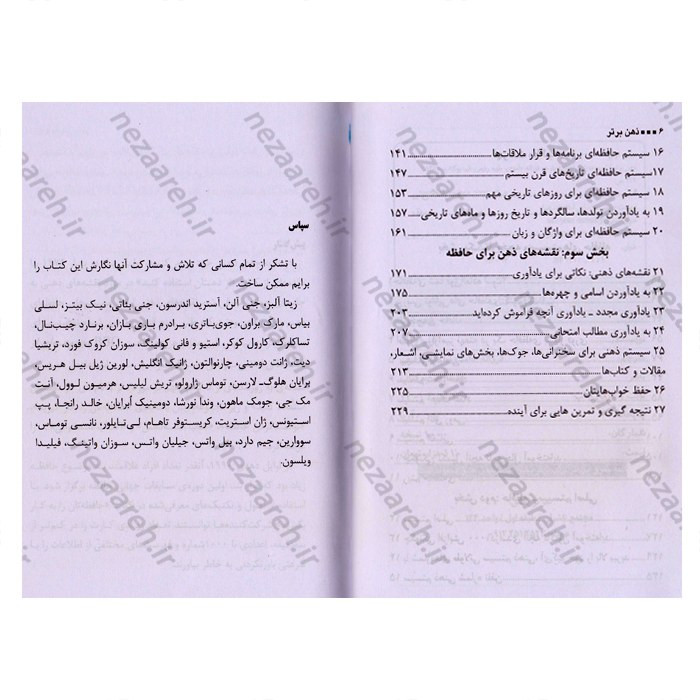 ۶ ■■■ ذهن برتر
۱۶ سیستم حافظه‌ای برنامه‌ها و قرار ملاقات‌ها ۱۴۱
۱۷ سیستم حافظه‌ای تاریخ‌های قرن بیستم ۱۴۷
۱۸ سیستم حافظه‌ای برای روزهای تاریخی مهم ۱۵۳
۱۹ به یادآوردن تولدها، سالگردها و تاریخ روزها و ماه‌های تاریخی ۱۵۷
۲۰ سیستم حافظه‌ای برای واژگان و زبان ۱۶۱
بخش سوم: نقشه‌های ذهن برای حافظه
۲۱ نقشه‌های ذهنی: نکاتی برای یادآوری ۱۷۱
۲۲ به یادآوردن اسامی و چهره‌ها ۱۷۵
۲۳ یادآوری مجدد ـ یادآوری آنچه فراموش کرده‌اید ۲۰۳
۲۴ به یادآوری مطالب امتحانی ۲۰۷
۲۵ سیستم ذهنی برای سخنرانی‌ها، جوک‌ها، بخش‌های نمایشی، اشعار،
مقالات و کتاب‌ها ۲۱۳
۲۶ حفظ خواب‌هایتان ۲۲۵
۲۷ نتیجه گیری و تمرین هایی برای آینده ۲۲۹
سپاس
با تشکر از تمام کسانی که تلاش و مشارکت آنها نگارش این کتاب را
برایم ممکن ساخت.
زیتا آلبز، جنی آلن، آسترید اندرسون، جنی بثانی، نیک بیتز، لسلی
بیاس، مارک براون، جوی‌باتری، برادرم باری بازان، برنارد چیب‌نال،
تساکلرک، کارول کوکر، استیو و فانی کولینگ، سوزان کروک فورد، تریشیا
دیت، ژانت دومینی، چارنوالتون، ژانیک انگلیش، لورین ژیل بیل هریس،
برایان هلوگ‌ـ لارسن، توماس ژارولو، تریش لیلیس، هرمیون لوول، آنت
مک جی، جومک ماهون، وندا نورشا، دومینیک اُبرایان، خالد رانجا، پپ
استیونس، ژان استریت، کریستوفر تاهام، لی‌تایلور، نانسی توماس،
سووارین، جیم دارد، پیل واتس، جیلیان واتس، سوزان واتینگ، فیلیدا
ویلسون.
nezaareh.ir
nezaareh.ir
nezaareh.ir
nezaareh.ir
nezaareh.ir
nezaareh.ir
nezaareh.ir
nezaareh.ir
nezaareh.ir